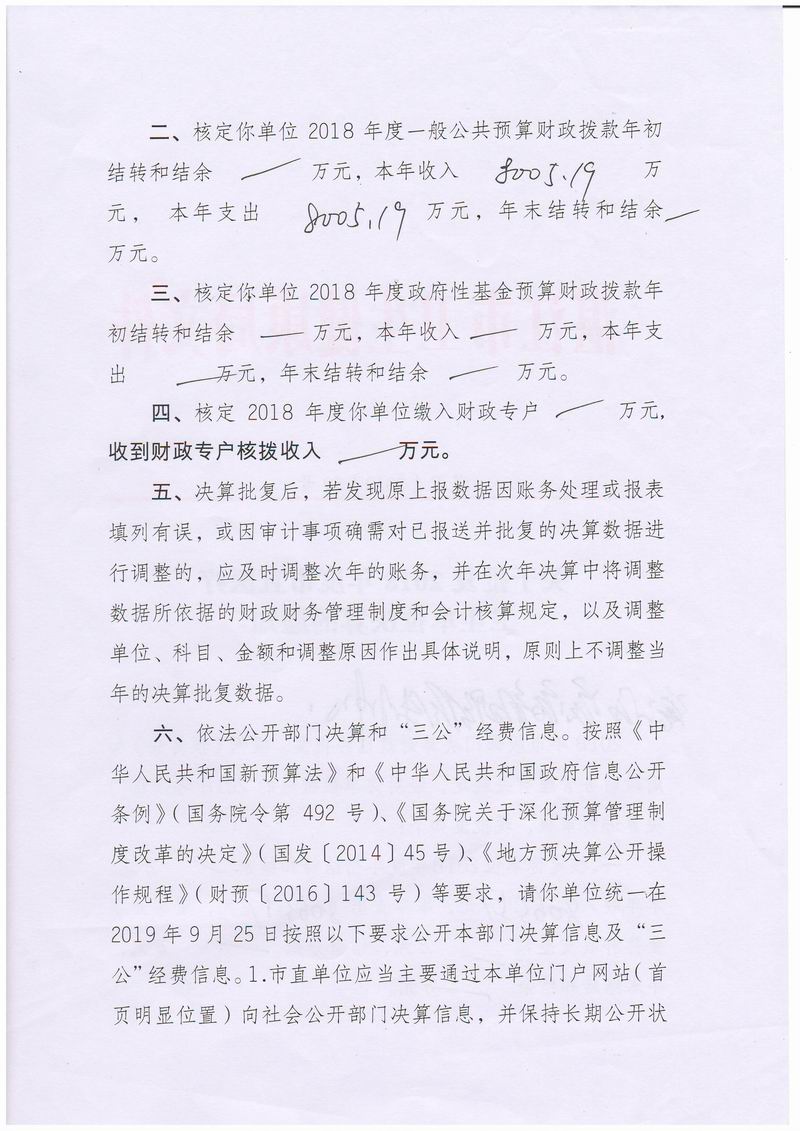 二、核定你单位 2018 年度一般公共预算财政拨款年初
结转和结余 — 万元，本年收入 8005.19 万
元， 本年支出 8005.19 万元，年末结转和结余 —
万元。
三、核定你单位 2018 年度政府性基金预算财政拨款年
初结转和结余 — 万元，本年收入 — 万元，本年支
出 — 万元，年末结转和结余 — 万元。
四、核定 2018 年度你单位缴入财政专户 — 万元，
收到财政专户核拨收入 — 万元。
五、决算批复后，若发现原上报数据因账务处理或报表
填列有误，或因审计事项确需对已报送并批复的决算数据进
行调整的，应及时调整次年的账务，并在次年决算中将调整
数据所依据的财政财务管理制度和会计核算规定，以及调整
单位、科目、金额和调整原因作出具体说明，原则上不调整当
年的决算批复数据。
六、依法公开部门决算和“三公”经费信息。按照《中
华人民共和国新预算法》和《中华人民共和国政府信息公开
条例》（国务院令第 492 号）、《国务院关于深化预算管理制
度改革的决定》（国发〔2014〕45 号）、《地方预决算公开操
作规程》（财预〔2016〕143 号）等要求，请你单位统一在
2019 年 9 月 25 日按照以下要求公开本部门决算信息及“三
公”经费信息。1.市直单位应当主要通过本单位门户网站（首
页明显位置）向社会公开部门决算信息，并保持长期公开状